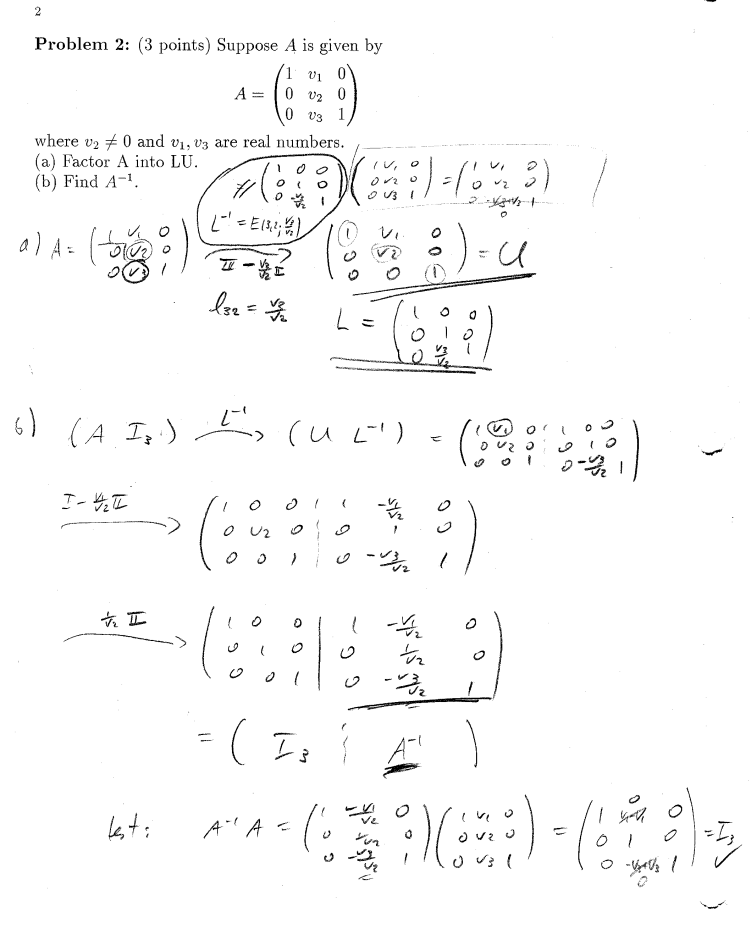 2
Problem 2: (3 points) Suppose A is given by
A = ( 1 v₁ 0
0 v₂ 0
0 v₃ 1 )
where v₂ ≠ 0 and v₁, v₃ are real numbers.
(a) Factor A into LU.
(b) Find A⁻¹.
( 1 0 0
0 1 0
0 -v₃/v₂ 1 ) ( 1 v₁ 0
0 v₂ 0
0 v₃ 1 ) = ( 1 v₁ 0
0 v₂ 0
0 -v₃+v₃ 1 )
0
L⁻¹ = E(3,2;
a) A = ( 1 v₁ 0
0 v₂ 0
0 v₃ 1 )
III - v₃/v₂ II
( 1 v₁ 0
0 v₂ 0
0 0 1 ) = U
l₃₂ = v₃/v₂
L = ( 1 0 0
0 1 0
0 v₃/v₂ 1 )
b) (A I₃) L⁻¹→ (U L⁻¹) = ( 1 v₁ 0 ¦ 1 0 0
0 v₂ 0 ¦ 0 1 0
0 0 1 ¦ 0 -v₃/v₂ 1 )
I - v₁/v₂ II →
( 1 0 0 ¦ 1 -v₁/v₂ 0
0 v₂ 0 ¦ 0 1 0
0 0 1 ¦ 0 -v₃/v₂ 1 )
1/v₂ II →
( 1 0 0 | 1 -v₁/v₂ 0
0 1 0 | 0 1/v₂ 0
0 0 1 | 0 -v₃/v₂ 1 )
= ( I₃ ¦ A⁻¹ )
test: A⁻¹ A = ( 1 -v₁/v₂ 0
0 1/v₂ 0
0 -v₃/v₂ 1 ) ( 1 v₁ 0
0 v₂ 0
0 v₃ 1 ) = ( 1 v₁-v₁ 0
0 1 0
0 -v₃+v₃ 1 ) = I₃ ✓
0
0